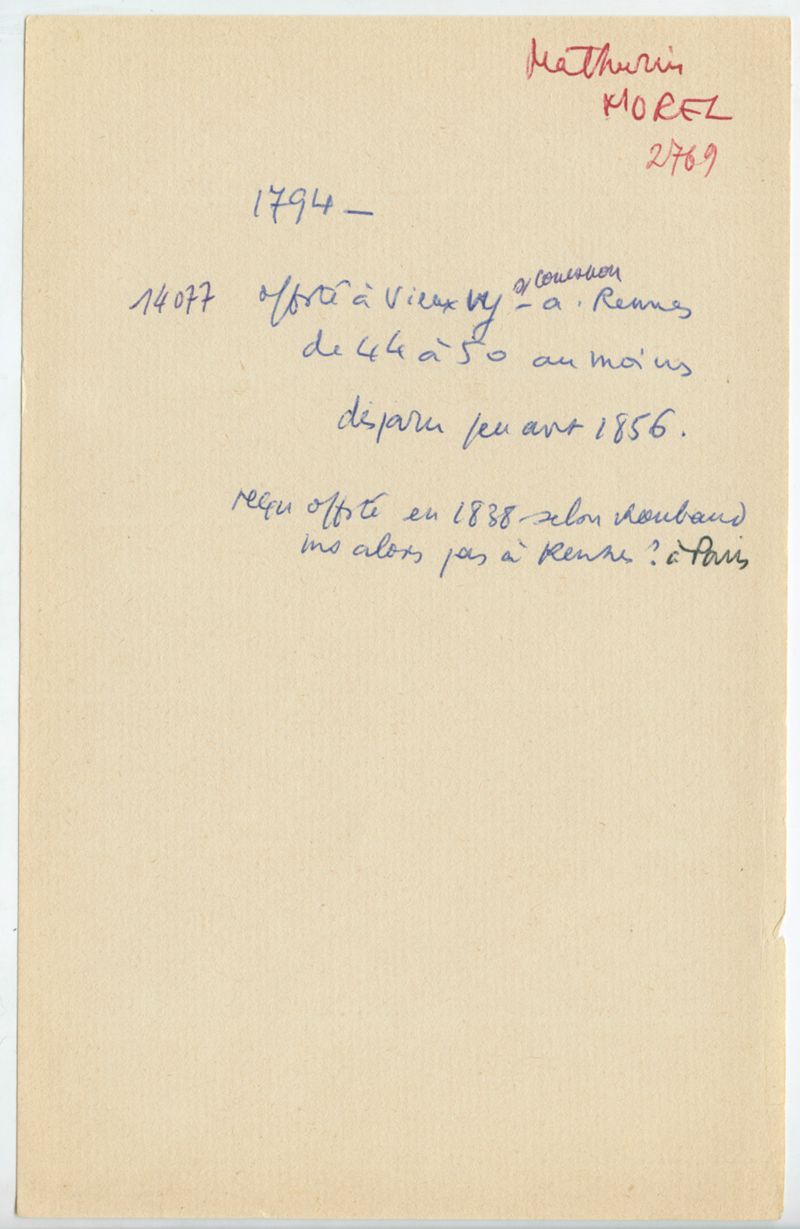 Mathurin
MOREL
2769
1794 –
s/ Couesnon
14077 offsté à Vieux Vy – a. Rennes
de 44 à 50 au moins
disparu peu avt 1856.
reçu offsté en 1838 selon Roubaud
ms alors pas à Rennes ? à Paris